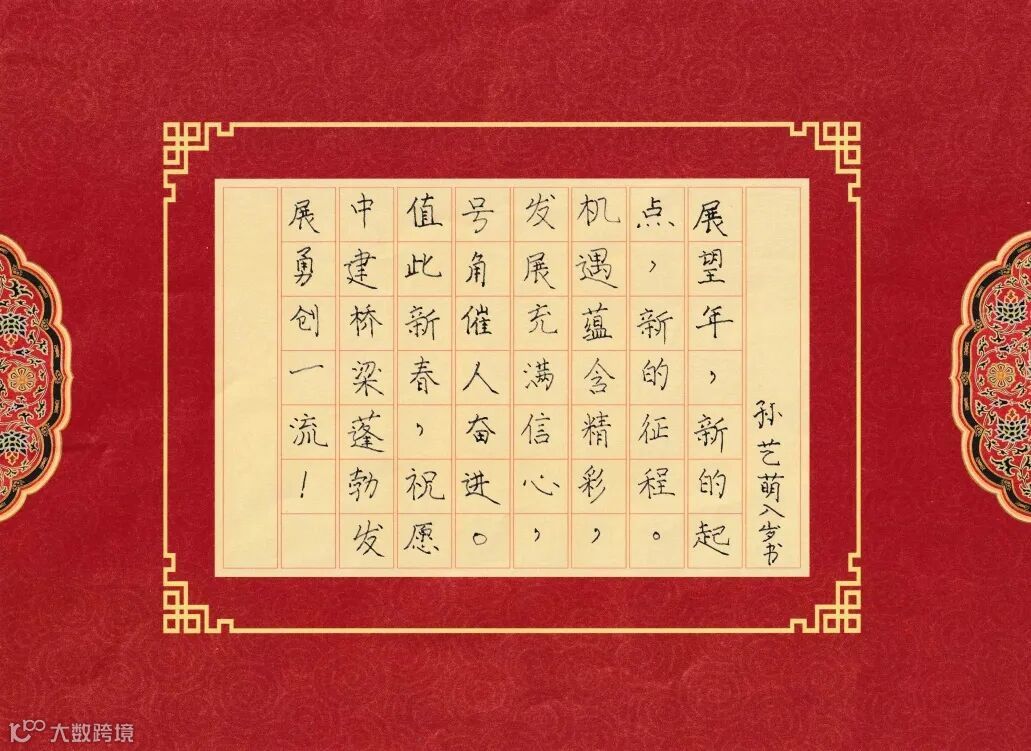 展望年，新的起
点，新的征程。
机遇蕴含精彩，
发展充满信心，
号角催人奋进。
值此新春，祝愿
中建桥梁蓬勃发
展勇创一流！
孙艺萌八岁书
大数跨境